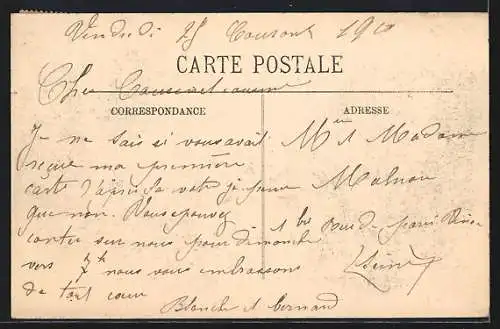 Vendredi 25 Courant 1910
CARTE POSTALE
Cher Cousin et cousine
CORRESPONDANCE
ADRESSE
Je ne sais si vous avait
reçue ma première
carte d'après la votre je pense
que non. Vous pouvez
conter sur nous pour dimanche
vers 7h nous vous embrassons
de tout cœur
Blanche et Bernard
Mr et Madame
1 bis Rue de paris
(Seine)